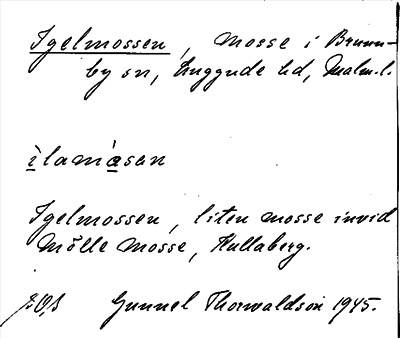 Igelmossen, mosse i Brunn-
by sn, Luggude hd, Malm.l.
ìlamàsan
Igelmossen, liten mosse invid
Mölle mosse, Kullaberg.
Gunnel Thorwaldson 1945.